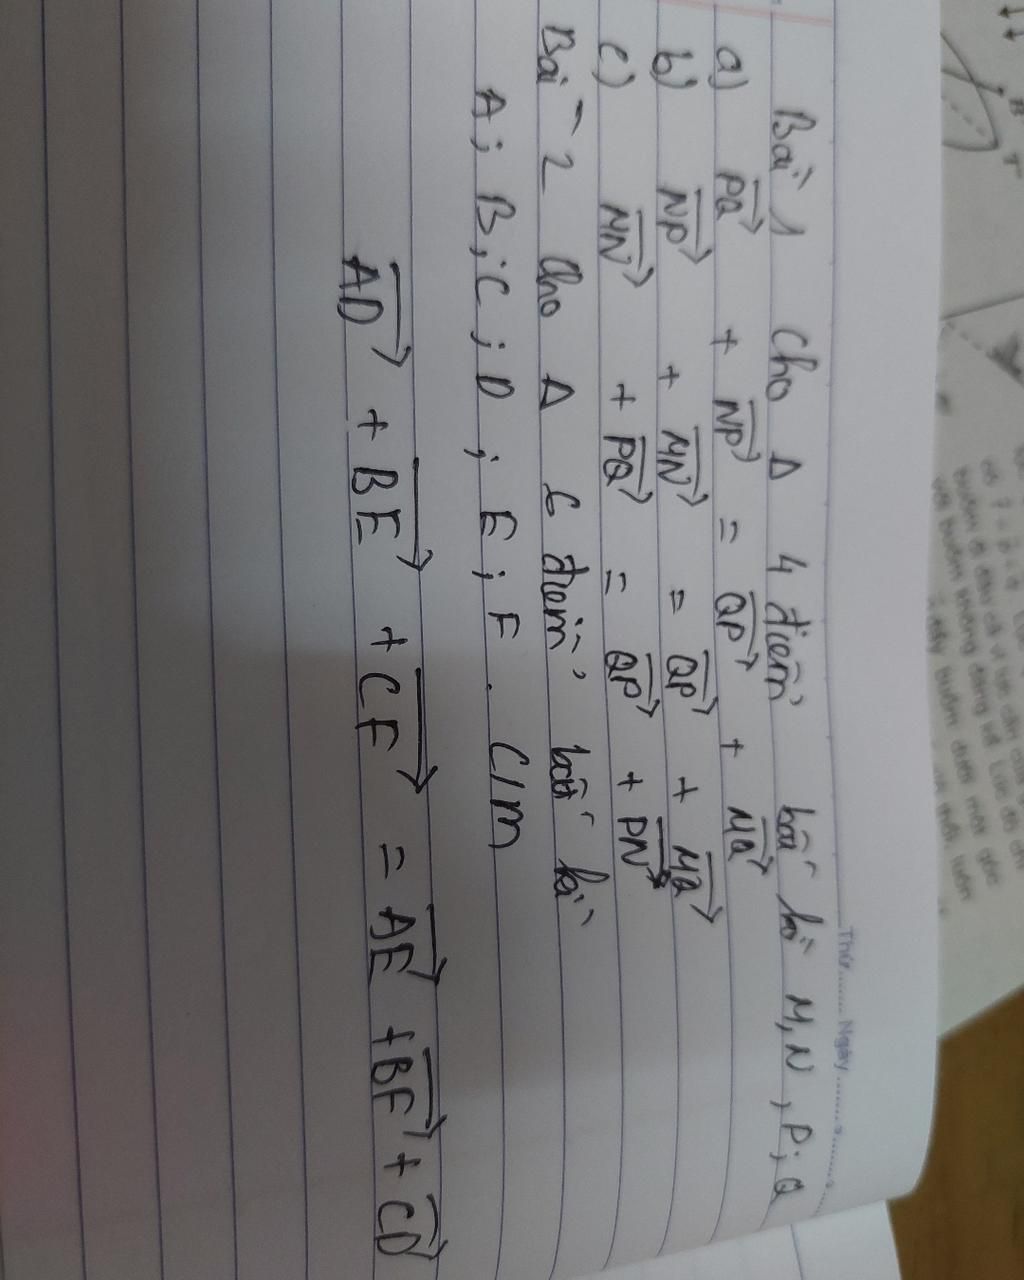 Thứ........ Ngày
Bài 1 Cho Δ 4 điểm bất kì M, N, P, Q
a) PQ + NP = QP + MQ
b) NP + MN = QP + MQ
c) MN + PQ = QP + PN
Bài 2 Cho Δ 6 điểm bất kì
A; B; C; D; E; F. C/m
AD + BE + CF = AE + BF + CD